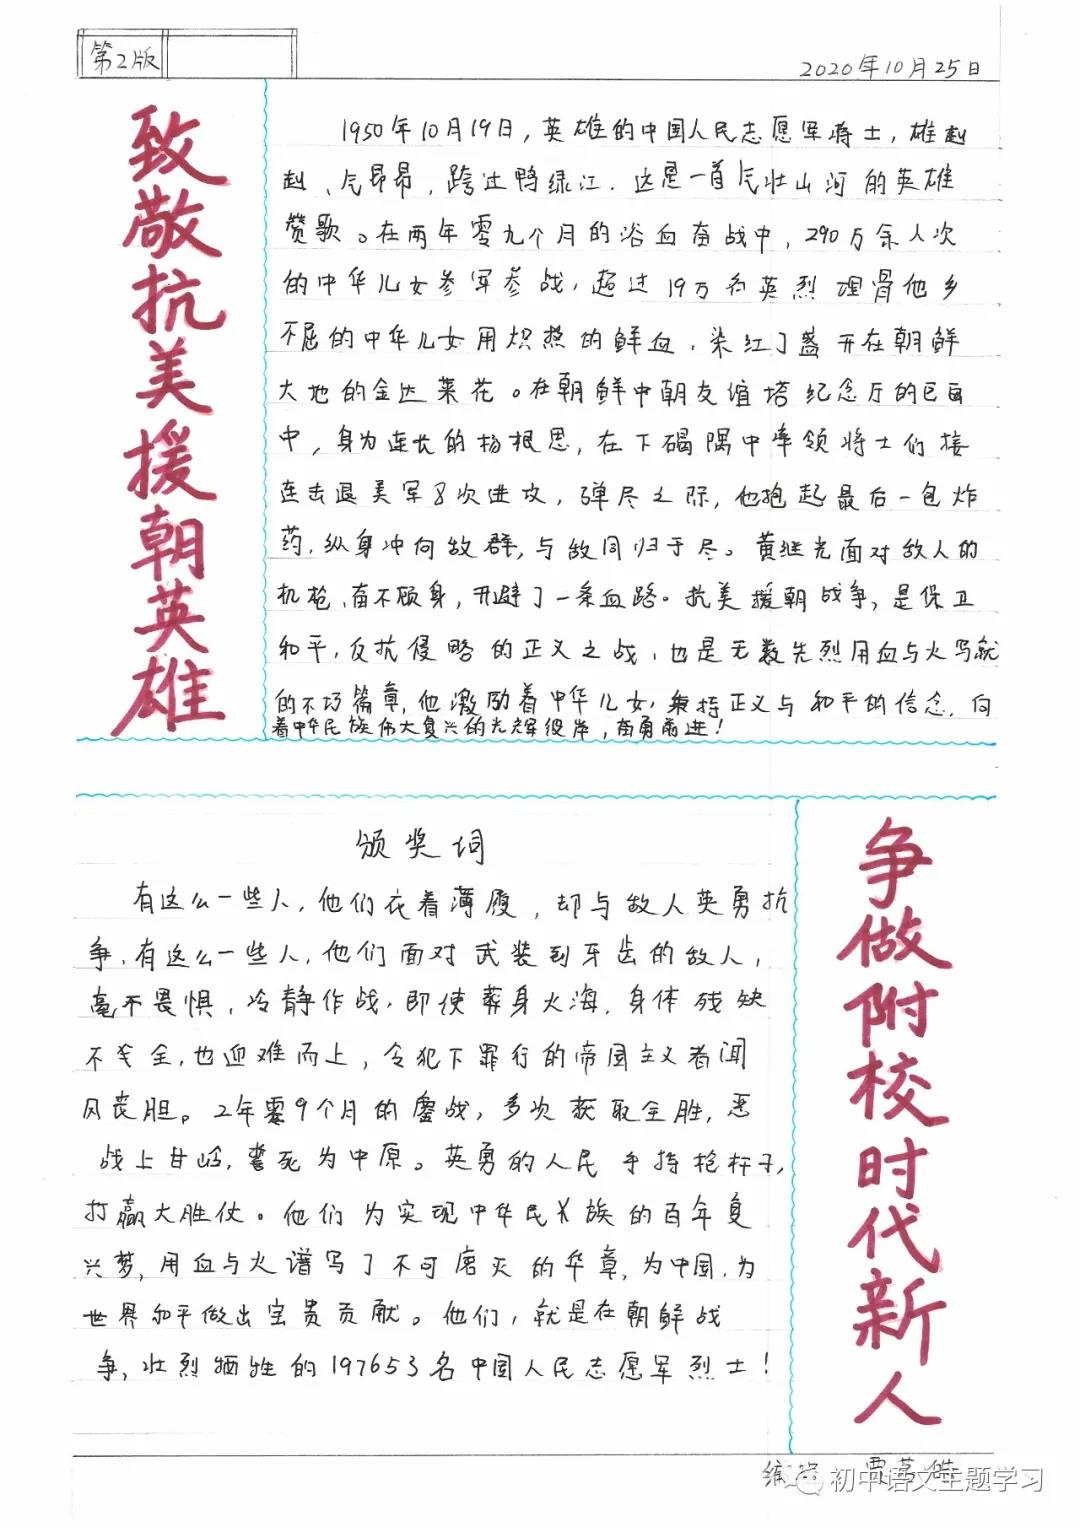 第2版
2020年10月25日
致敬抗美援朝英雄
1950年10月19日,英雄的中国人民志愿军将士,雄赳
赳、气昂昂,跨过鸭绿江.这是一首气壮山河的英雄
赞歌。在两年零九个月的浴血奋战中,290万余人次
的中华儿女参军参战,超过19万名英烈埋骨他乡
不屈的中华儿女用炽热的鲜血,染红了盛开在朝鲜
大地的金达莱花。在朝鲜中朝友谊塔纪念厅的巨画
中,身为连长的杨根思,在下碣隅中率领将士们接
连击退美军8次进攻,弹尽之际,他抱起最后一包炸
药,纵身冲向敌群,与敌同归于尽。黄继光面对敌人的
机枪,奋不顾身,开辟了一条血路。抗美援朝战争,是保卫
和平,反抗侵略的正义之战,也是无数先烈用血与火写就
的不巧篇章,他激励着中华儿女,秉持正义与和平的信念,向
着中华民族伟大复兴的光辉彼岸,奋勇前进!
颁奖词
有这么一些人,他们衣着薄履,却与敌人英勇抗
争,有这么一些人,他们面对武装到牙齿的敌人,
毫不畏惧,冷静作战,即使葬身火海,身体残缺
不全,也迎难而上,令犯下罪行的帝国主义者闻
风丧胆。2年零9个月的鏖战,多次获取全胜,恶
战上甘岭,誓死为中原。英勇的人民手持枪杆子,
打赢大胜仗。他们为实现中华民族的百年复
兴梦,用血与火谱写了不可磨灭的华章,为中国,为
世界和平做出宝贵贡献。他们,就是在朝鲜战
争,壮烈牺牲的197653名中国人民志愿军烈士!
争做附校时代新人
初中语文主题学习